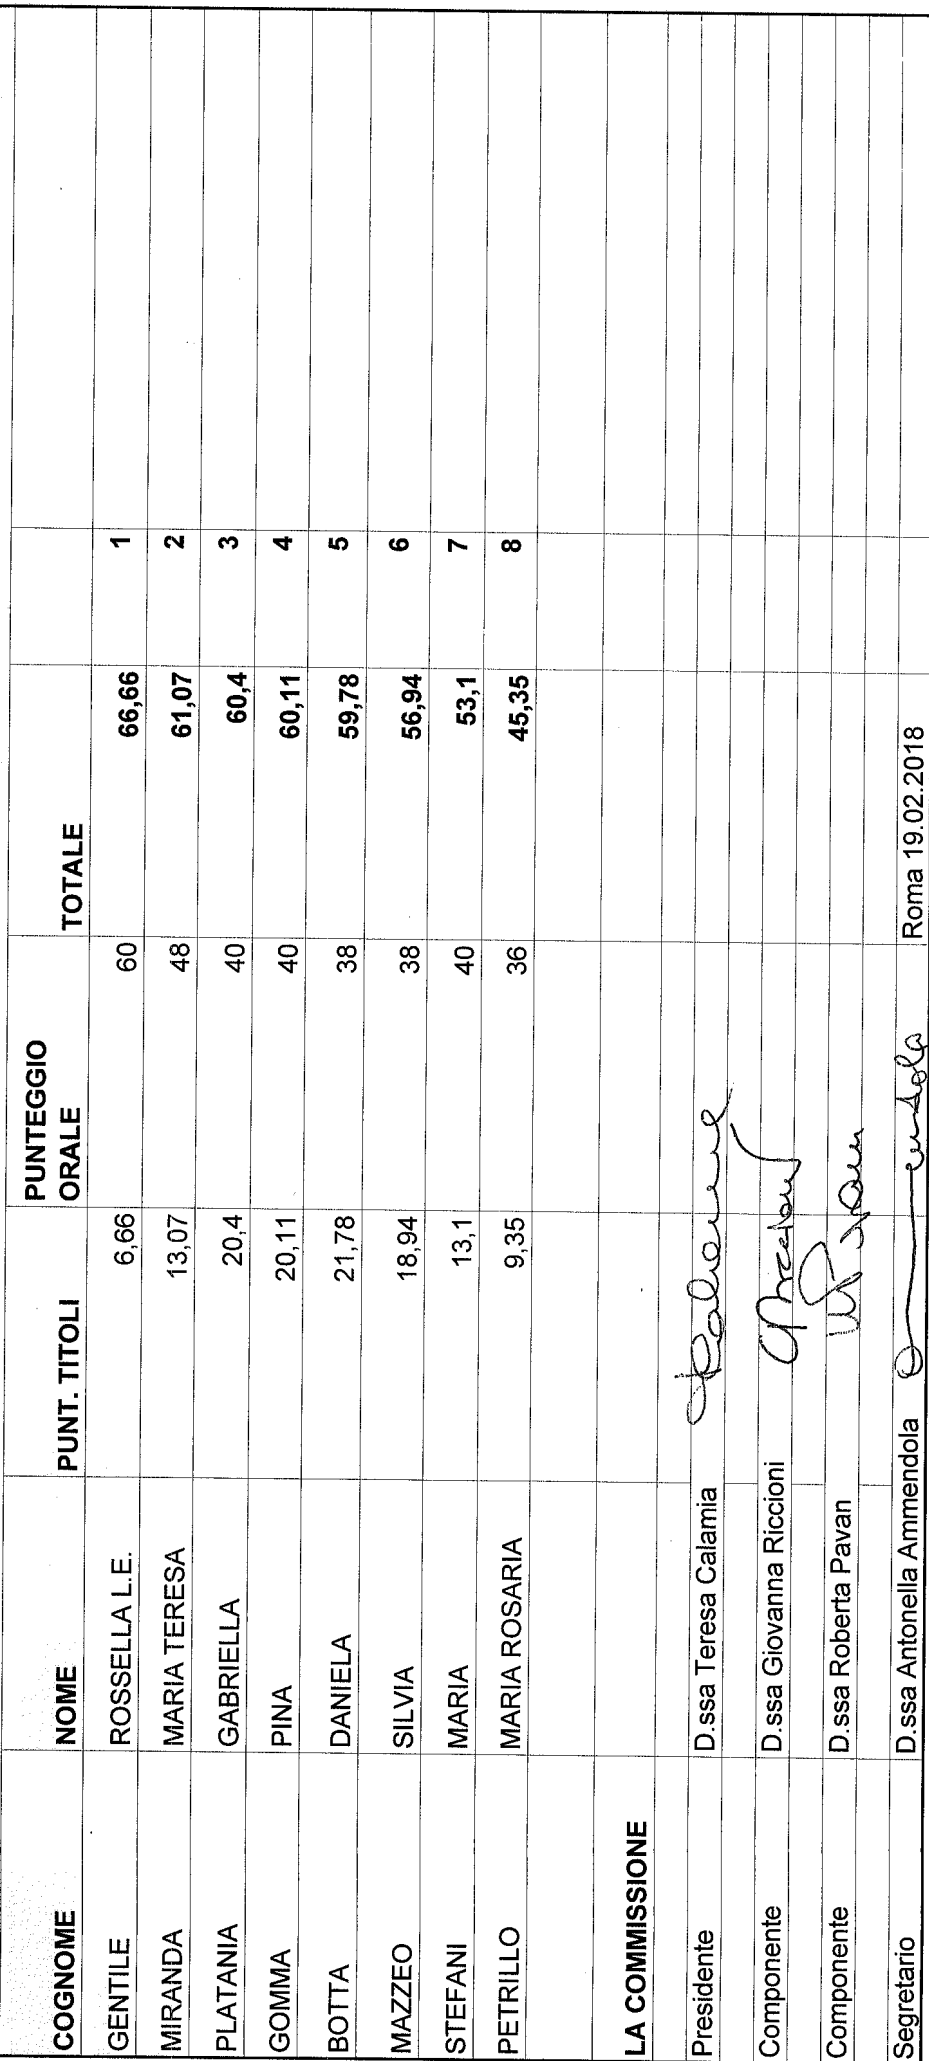 COGNOME NOME PUNT. TITOLI PUNTEGGIO ORALE TOTALE
GENTILE ROSSELLA L.E. 6,66 60 66,66 1
MIRANDA MARIA TERESA 13,07 48 61,07 2
PLATANIA GABRIELLA 20,4 40 60,4 3
GOMMA PINA 20,11 40 60,11 4
BOTTA DANIELA 21,78 38 59,78 5
MAZZEO SILVIA 18,94 38 56,94 6
STEFANI MARIA 13,1 40 53,1 7
PETRILLO MARIA ROSARIA 9,35 36 45,35 8
LA COMMISSIONE
Presidente D.ssa Teresa Calamia
Componente D.ssa Giovanna Riccioni
Componente D.ssa Roberta Pavan
Segretario D.ssa Antonella Ammendola Roma 19.02.2018